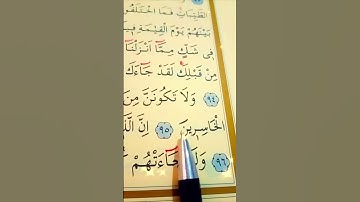 الطَّيِّبَاتِ فَمَا اخْتَلَفُوا
بَيْنَهُمْ يَوْمَ الْقِيٰمَةِ
فِي شَكٍّ مِمَّٓا اَنْزَلْنَٓا
مِنْ قَبْلِكَ لَقَدْ جَٓاءَكَ
﴿٩٤﴾ وَلَا تَكُونَنَّ مِنَ
الْخَاسِرِينَ ﴿٩٥﴾ اِنَّ
﴿٩٦﴾ جَٓاءَتْهُمْ